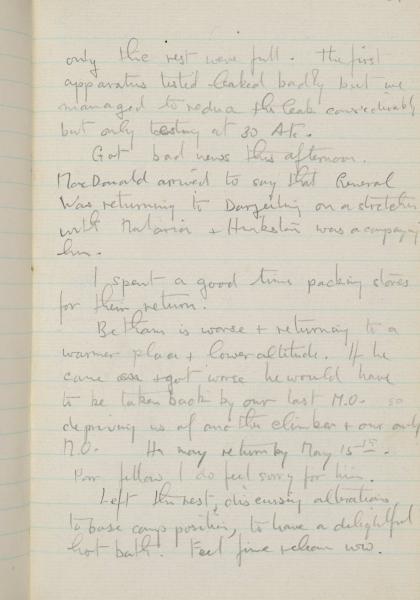 only the rest were full. The first
apparatus tested leaked badly but we
managed to reduce the leak considerably
but only testing at 30 Ats.
Got bad news this afternoon.
MacDonald arrived to say that General
was returning to Darjeeling on a stretcher
with Malaria + Hinkston was accompanying
him.
I spent a good time packing stores
for their return.
Betham is worse + returning to a
warmer place + lower altitude. If he
came on + got worse he would have
to be taken back by our last M.O. so
depriving us of another climber + our only
M.O. He may return by May 15th.
Poor fellow I do feel sorry for him.
Left the rest, discussing alterations
to base camp position, to have a delightful
hot bath. Feel fine + clean now.